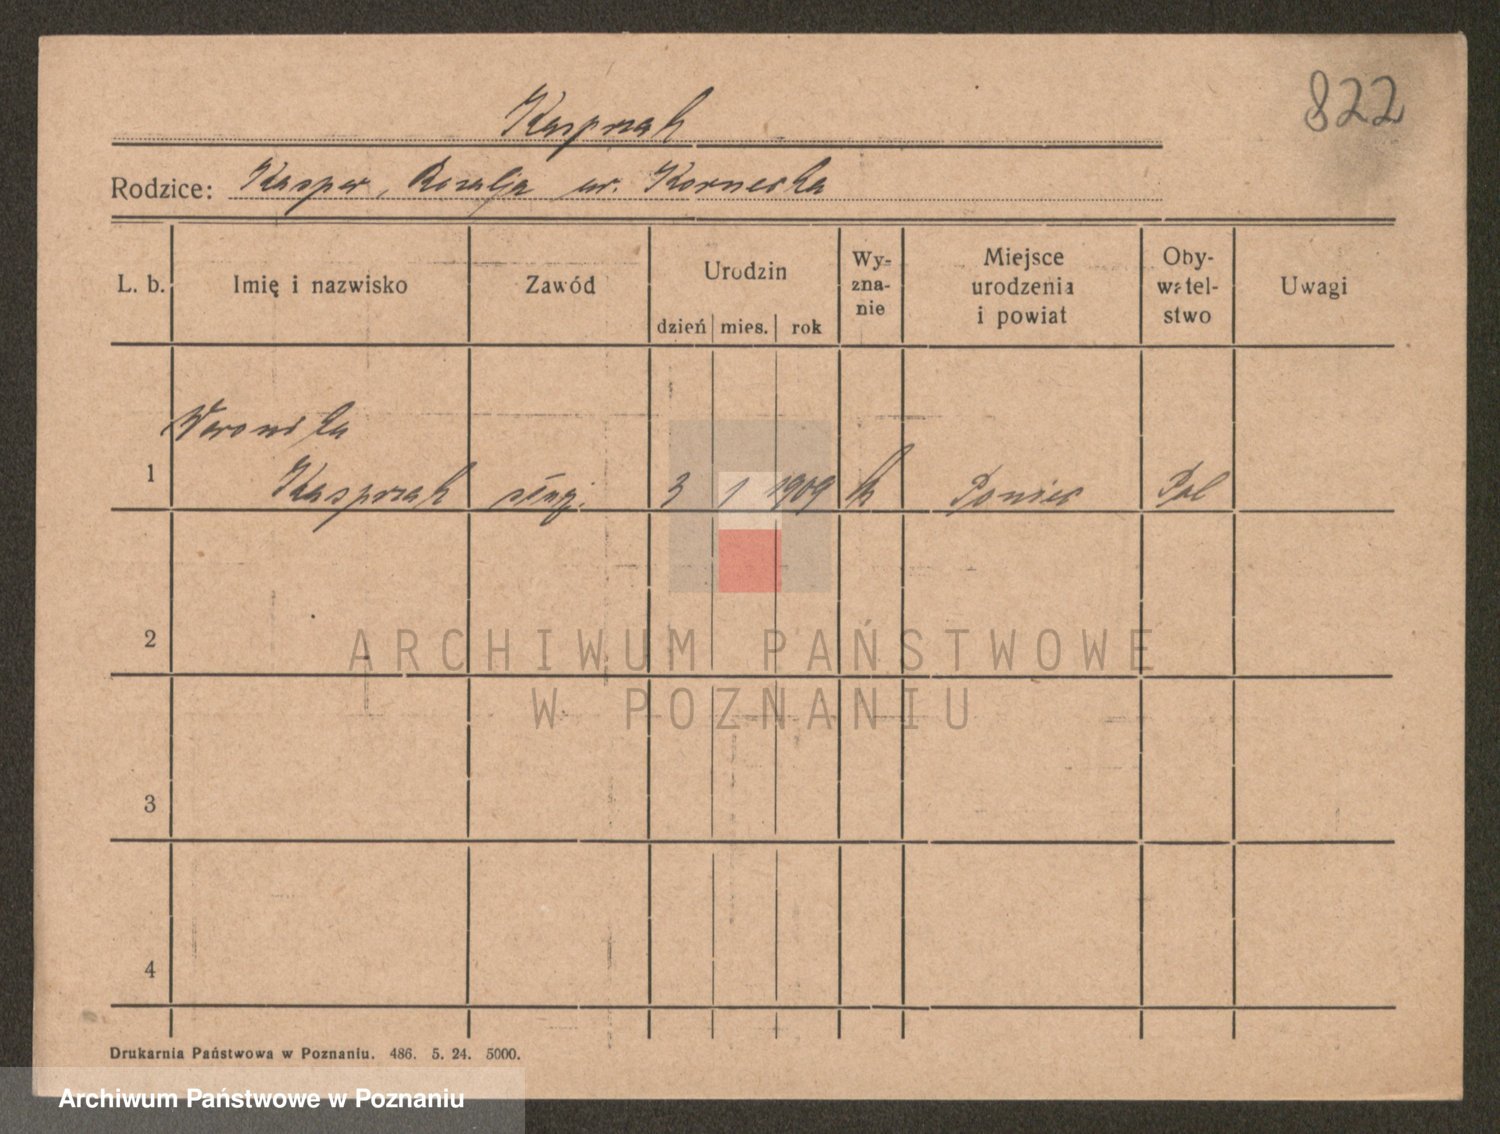 822
Kasprzak
Rodzice: Kasper, Rozalja ur. Kornecka
L. b.
Imię i nazwisko
Zawód
Urodzin
dzień mies. rok
Wy-
zna-
nie
Miejsce
urodzenia
i powiat
Oby-
watel-
stwo
Uwagi
Weronika
1 Kasprzak służ. 3 1 1909 k Poniec Pol
2
3
4
ARCHIWUM PAŃSTWOWE
W POZNANIU
Drukarnia Państwowa w Poznaniu. 486. 5. 24. 5000.
Archiwum Państwowe w Poznaniu